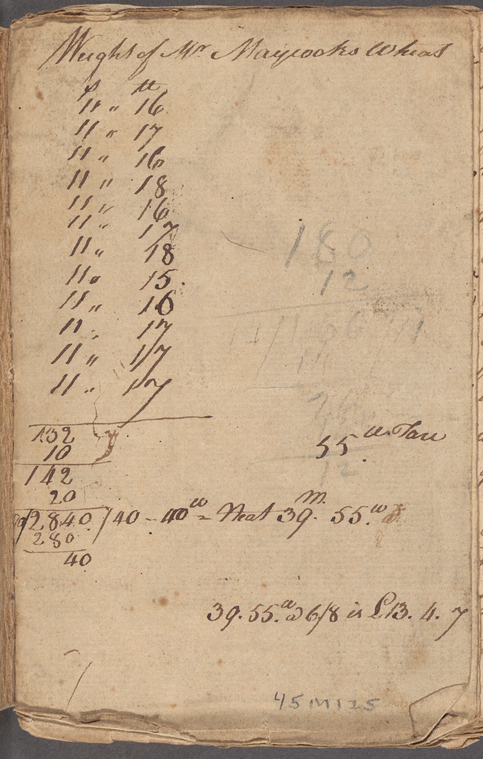 Weight of Mr Maycocks Wheat
11 " 16
11 " 17
11 " 16
11 " 18
11 " 16
11 " 17
11 " 18
11 " 15
11 " 16
11 " 17
11 " 17
11 " 17
132
10
142
20
2840 / 40 - 40 lb - Neat 39. 55.
280
40
55 lb Tare
180
12
39. 55. a 6/8 is £13. 4. 7
45M125